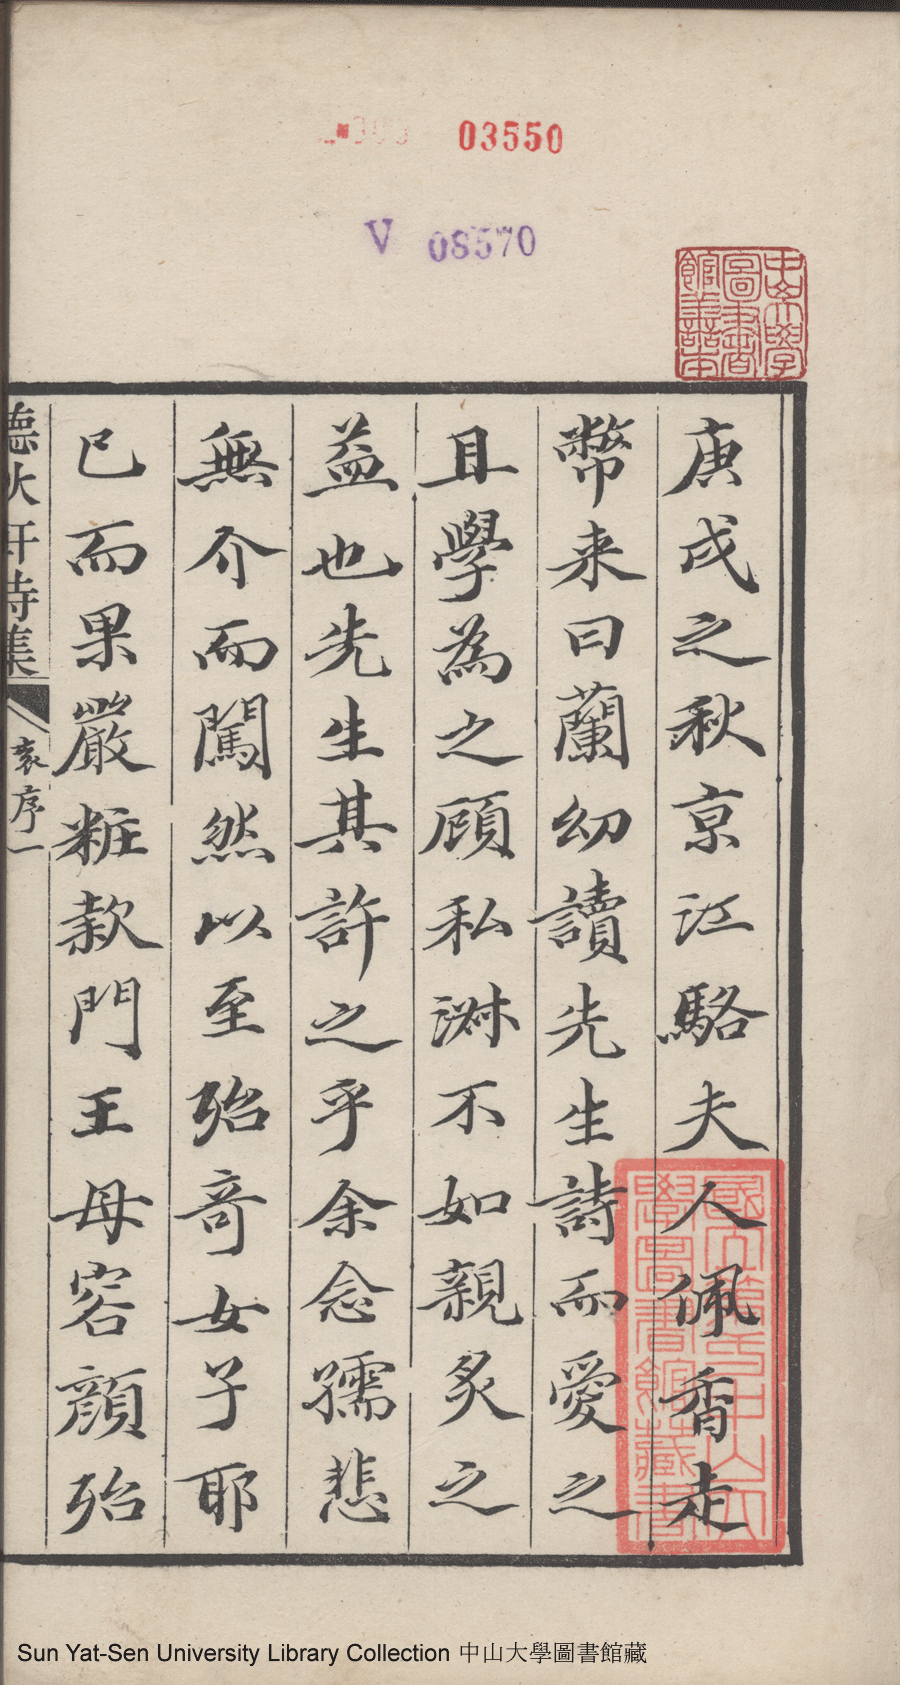 03550
V 08570
中山大學
圖書
館善本
庚戌之秋京江駱夫人佩香走
幣来曰蘭幼讀先生詩而愛之
且學為之顧私淑不如親炙之
益也先生其許之乎余念孺悲
無介而闖然以至殆奇女子耶
已而果嚴粧款門王母容顔殆
聽秋軒詩集
袁序一
學圖書館藏書
Sun Yat-Sen University Library Collection 中山大學圖書館藏